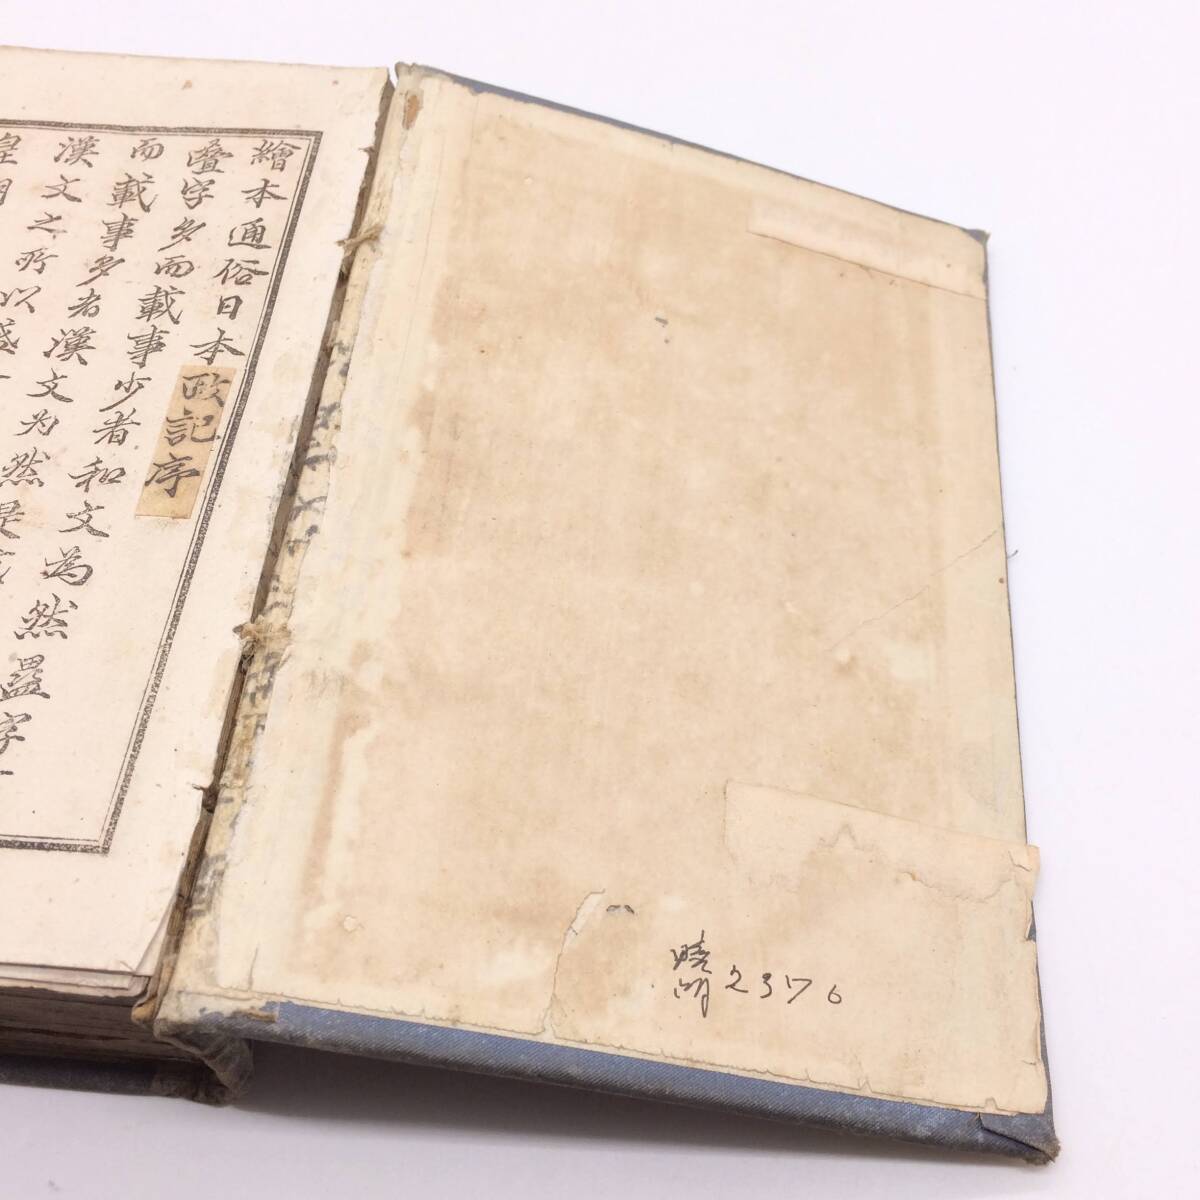 繪本通俗日本政記序
疊字多而載事少者和文為然畾字
而載事多者漢文为然是
漢文之所以盛
皇朝
曉明2376